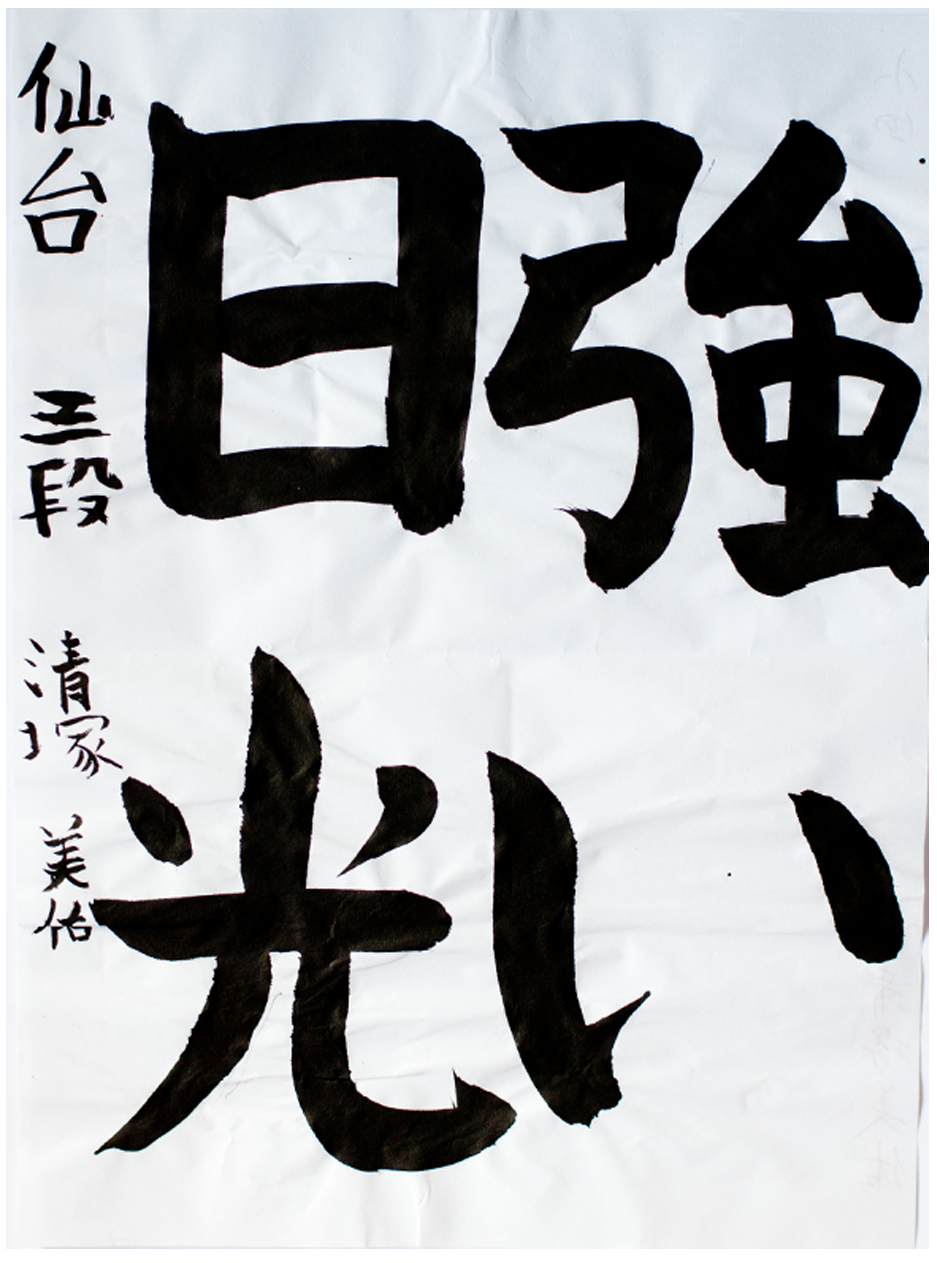 強い
日光
仙台 三段 清塚 美佑